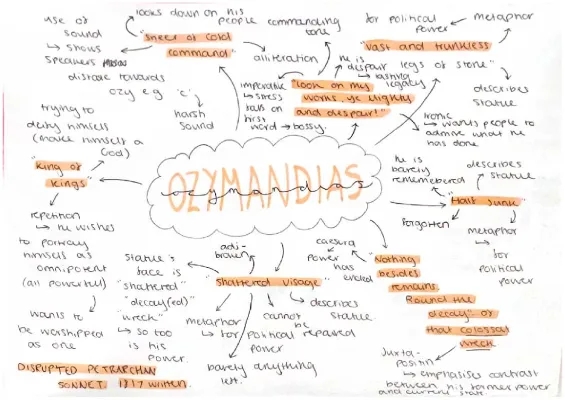 looks down on his
people commanding
tone
use of
sound
→ shows
speakers
distaste towards
ozy e.g 'c'
"sneer of cold
command"
alliteration
harsh
sound
for political
power
metaphor
"Vast and trunkless
legs of stone"
describes
statue
ironic
→ wants people to
admire what he
has done
he is
despair
→ lasting
legacy
imperative
→ stress
falls on
first
word → bossy
"Look on my
works, ye Mighty
and despair!"
trying to
deify himself
(make himself a
God)
"King of
Kings"
repetition
→ he wishes
to portray
himself as
omnipotent
(all powerful)
wants to
be worshipped
as one
OZYMANDIAS
ozymandias
he is
barely
remembered
describes
statue
"Half sunk"
forgotten
metaphor
→ for
political
power
caesura
power
has
eroded
"Nothing
besides
remains.
Round the
decay" of
that colossal
wreck
juxta-
position
→ emphasises contrast
between his former power
and current state.
"shattered visage"
statue's
face is
"shattered"
"decay(ed)"
"wreck"
→ so too
is his
power.
metaphor
→ for political
power
cannot
be
repaired
describes
statue.
barely anything
left.
DISRUPTED PETRARCHAN
SONNET. 1817 written.